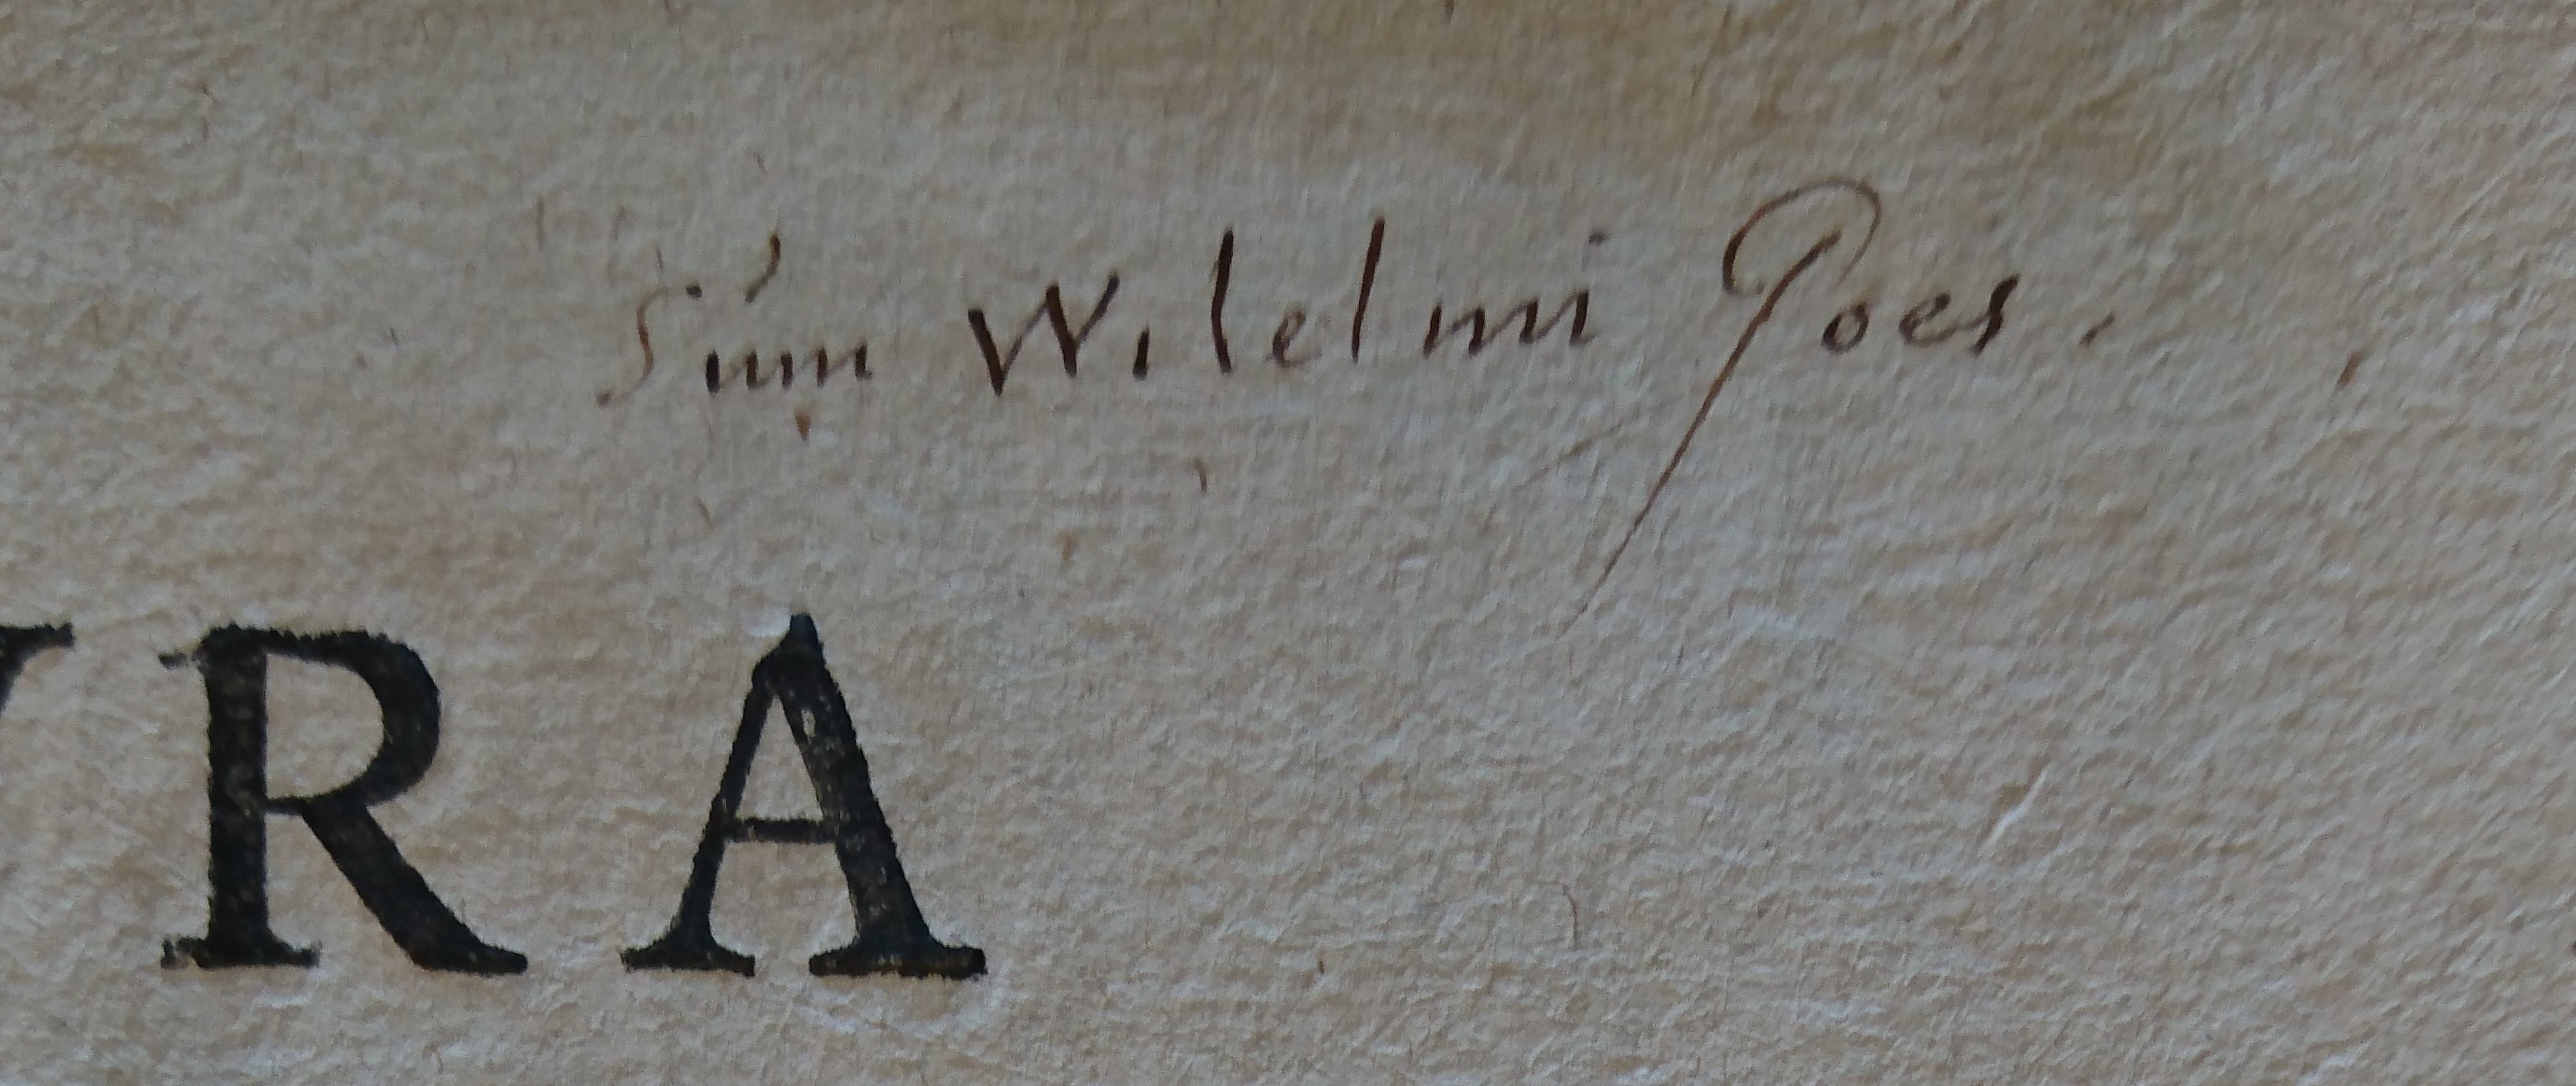 Sum Wilelmi Goes.
RA